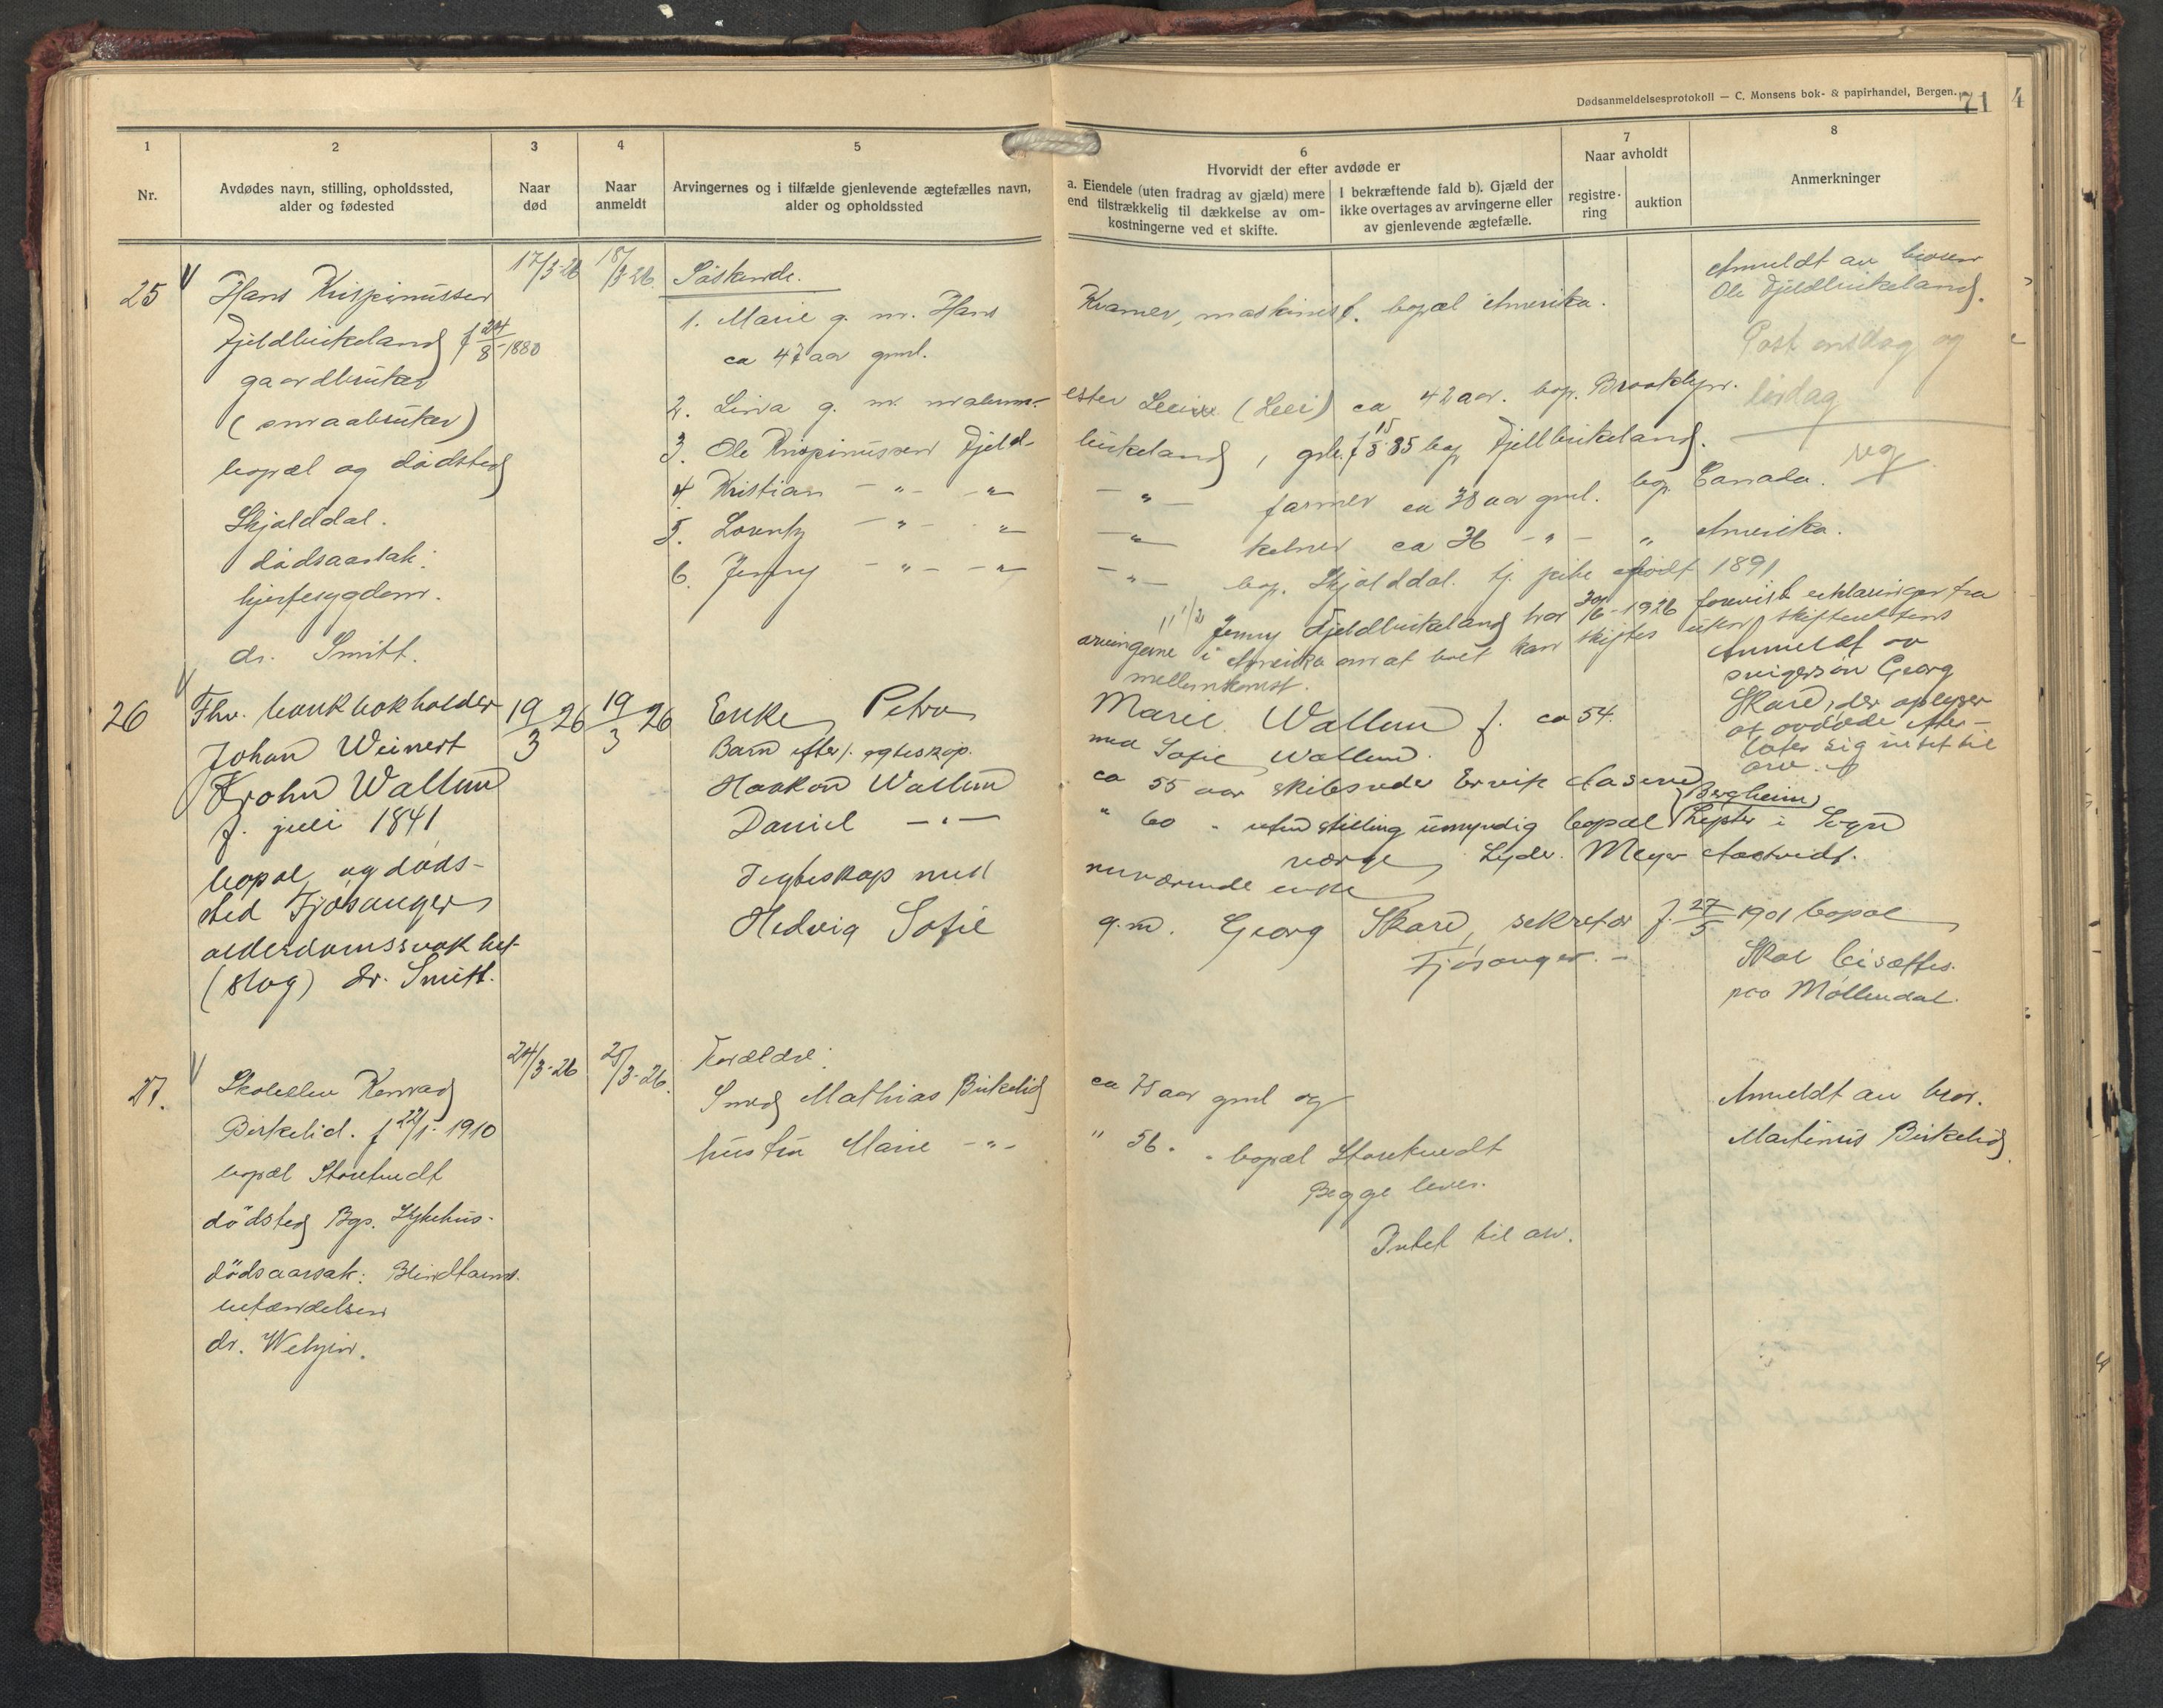 Dødsanmeldelsesprotokoll — C. Monsens bok- & papirhandel, Bergen.
71
4
1
Nr.
2
Avdødes navn, stilling, opholdssted,
alder og fødested
3
Naar
død
4
Naar
anmeldt
5
Arvingernes og i tilfælde gjenlevende ægtefælles navn,
alder og opholdssted
6
Hvorvidt der efter avdøde er
a. Eiendele (uten fradrag av gjæld) mere
end tilstrækkelig til dækkelse av om-
kostningerne ved et skifte.
I bekræftende fald b). Gjæld der
ikke overtages av arvingerne eller
av gjenlevende ægtefælle.
7
Naar avholdt
registre-
ring
auktion
8
Anmerkninger
25
Hans Krispinussen
Fjeldbirkeland f 24/8-1880
gaardbruker
(smaabruker)
bopæl og dødsted
Skjolddal.
dødsaarsak:
hjertesygdom.
dr. Smitt.
17/3-26
18/3-26.
Søskende.
1. Marie g. m. Hans
Kramer, maskinist. bopæl Amerika.
ca 47 aar gml.
2. Lina g. m.
ca 42 aar. bop. Brooklyn.
3. Ole Krispinussen Fjeld-
birkeland, grbr. f 15/3-85 bop Fjellbirkeland.
4. Kristian — " — " —
— " — farmer ca 38 aar gml. bop. Canada.
5. Lorentz — " — " —
— " — kelner ca 36 — " — " Amerika.
6. Jenny — " — " —
— " — bop. Skjolddal. tj. pike født 1891
Jenny Fjeldbirkeland har 30/6-1926 forevist erklæringer fra
arvingerne i Amerika om at boet kan skiftes uten skifterettens
mellemkomst.
Anmeldt av broren
Ole Fjeldbirkeland.
Post onsdag og
lørdag
26
Fhv. bankbokholder
Johan Weinert
Krohn Wallem
f. juli 1841
bopæl og døds-
sted Fjøsanger
alderdomssvakhet
(slag) dr. Smitt.
19/3 26
19/3 26
Enke Petra
Marie Wallem f. ca 54.
Barn efter 1. egteskap.
med Sofie Wallem.
Haakon Wallem
ca 55 aar skibsreder
Daniel — " —
" 60 " uten stilling umyndig bopæl Bergheim
i Sogn
værge Lyder Meyer
I egteskap med
nuværende enke
Hedvig Sofie
g.m. Georg Skare, sekretær f. 27/5 1901 bopæl
Fjøsanger. —
Anmeldt av
svigersøn Georg
Skare, der oplyser
at avdøde efter-
later sig intet til
arv.
Skal bisættes
paa Møllendal.
27.
Skoleelev Konrad
Birkelid. f 22/1-1910
bopæl Storetvedt
dødsted Bgs. Sykehus.
dødsaarsak: Blindtarms-
betændelsen
dr.
24/3-26
25/3-26.
Forældre:
Smed Mathias Birkelid
ca 75 aar gml og
hustru Marie — " —
" 56 " " bopæl Storetvedt
Begge lever.
Intet til arv.
Anmeldt av bror.
Martinus Birkelid.